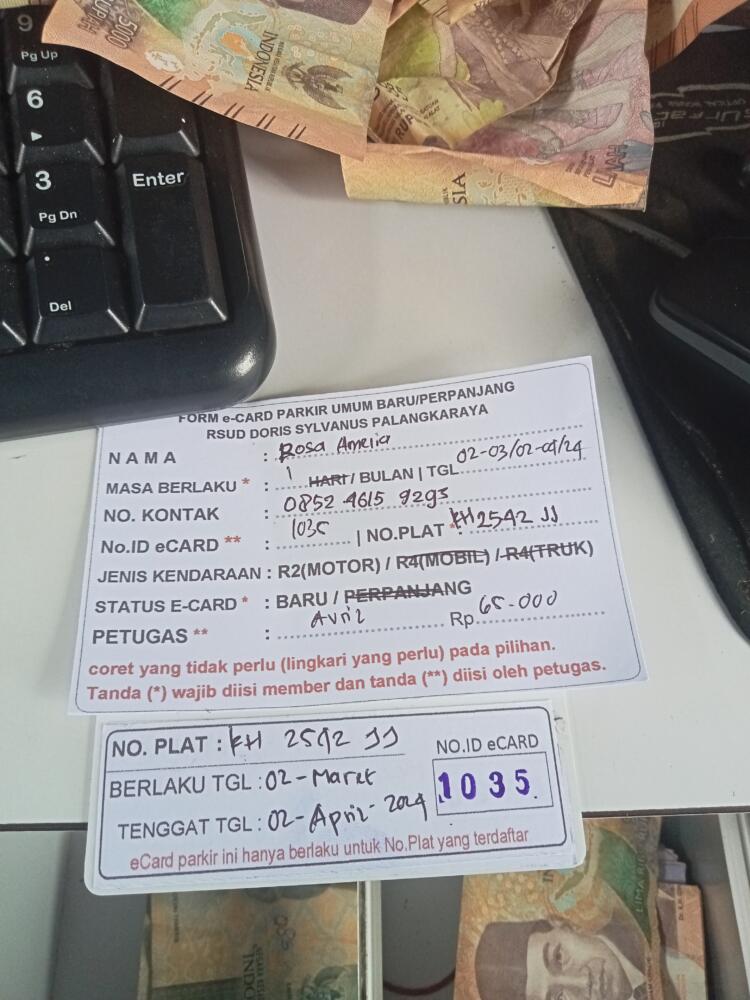 9
Pg Up
6
3
Pg Dn
Enter
.
Del
5000
INDONESIA
FORM e-CARD PARKIR UMUM BARU/PERPANJANG
RSUD DORIS SYLVANUS PALANGKARAYA
NAMA : Rosa Amelia
MASA BERLAKU * : 1 HARI / BULAN | TGL 02-03/02-04/24
NO. KONTAK : 0852 4615 9293
No.ID eCARD ** : 1035 | NO.PLAT * : KH 2542 JJ
JENIS KENDARAAN : R2(MOTOR) / R4(MOBIL) / R4(TRUK)
STATUS E-CARD * : BARU / PERPANJANG
PETUGAS ** : Avril Rp 65.000
coret yang tidak perlu (lingkari yang perlu) pada pilihan.
Tanda (*) wajib diisi member dan tanda (**) diisi oleh petugas.
NO. PLAT : KH 2542 JJ
NO.ID eCARD
BERLAKU TGL : 02-Maret
1035.
TENGGAT TGL : 02-April-2024
eCard parkir ini hanya berlaku untuk No.Plat yang terdaftar